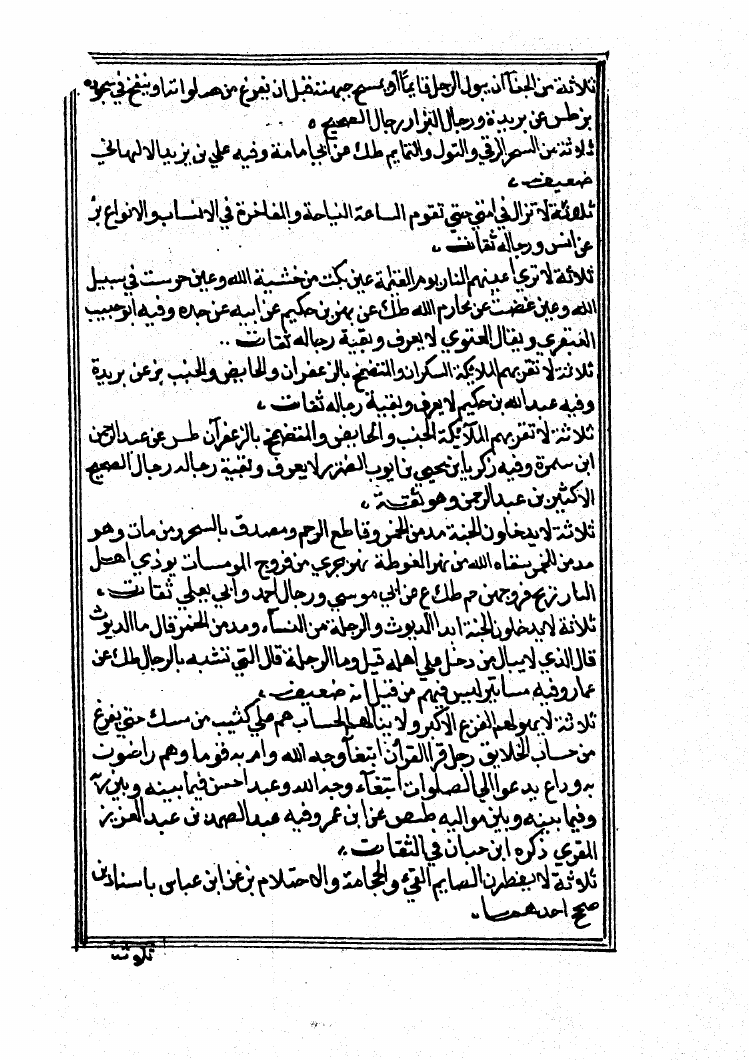 ثلاثة من الجفا أن يبول الرجل قايماً أو يمسح جبهته قبل ان يفرغ من صلواته أو ينفخ في سجوده
بز طس عن بريدة ورجال البزار رجال الصحيح
ثلاثة من السحر الرقي والتول والتمايم طك عن ابي امامة وفيه علي بن يزيد الالهاني
ضعيف
ثلاثة لا تزال في امتي حتي تقوم الساعة النياحة والمفاخرة في الانساب والانواع بز
عن انس ورجاله ثقات
ثلاثة لا تري اعينهم النار يوم القيمة عين بكت من خشية الله وعين حرست في سبيل
الله وعين غضت عن محارم الله طك عن بهز بن حكيم عن ابيه عن جده وفيه ابو حبيب
العنقري ويقال العنوي لا يعرف وبقية رجاله ثقات
ثلاثة لا تقربهم الملايكة السكران والمتضمخ بالزعفران والحايض والجنب بز عن بريدة
وفيه عبد الله بن حكيم لا يعرف وبقية رجاله ثقات
ثلاثة لا تقربهم الملآيكة الجنب والحايض والمتضمخ بالزعفرآن طس عن عبد الرحمن
ابن سمرة وفيه زكريا بن يحيي بن ايوب الضرير لا يعرف وبقية رجاله رجال الصحيح
الا كثير بن عبد الرحمن وهو ثقة
ثلاثة لا يدخلون الجنة مدمن الخمر وقاطع الرحم ومصدق بالسحر ومن مات وهو
مدمن الخمر سقاه الله من نهر الغوطة نهر يجري من فروج المومسات يوذي اهل
النار ريح فروجهن حم طك ع عن ابي موسي ورجال احمد وابي يعلي ثقات
ثلاثة لا يدخلون الجنة ابدا الديوث والرجلة من النسآء ومدمن الخمر قال ما الديوث
قال الذي لا يبالي من دخل علي اهله قيل وما الرجلة قال التي تتشبه بالرجال طك عن
عمار وفيه مساتير ليس فيهم من قيل انه ضعيف
ثلاثة لا يهولهم الفزع الاكبر ولا ينالهم الحساب هم علي كثيب من مسك حتي يفرغ
من حساب الخلايق رجل قرا القرآن ابتغآ وجه الله وام به قوما وهم راضون
به وداع يدعو الي الصلوات ابتغآء وجه الله وعبد احسن فيما بينه وبين ربه
وفيما بينه وبين مواليه طس ص عن ابن عمر وفيه عبد الصمد بن عبد العزيز
المقري ذكره ابن حبان في الثقات
ثلاثة لا يفطرن الصايم القيء والحجامة والاحتلام بز عن ابن عباس باسنادين
صح احدهما
ثلاثة